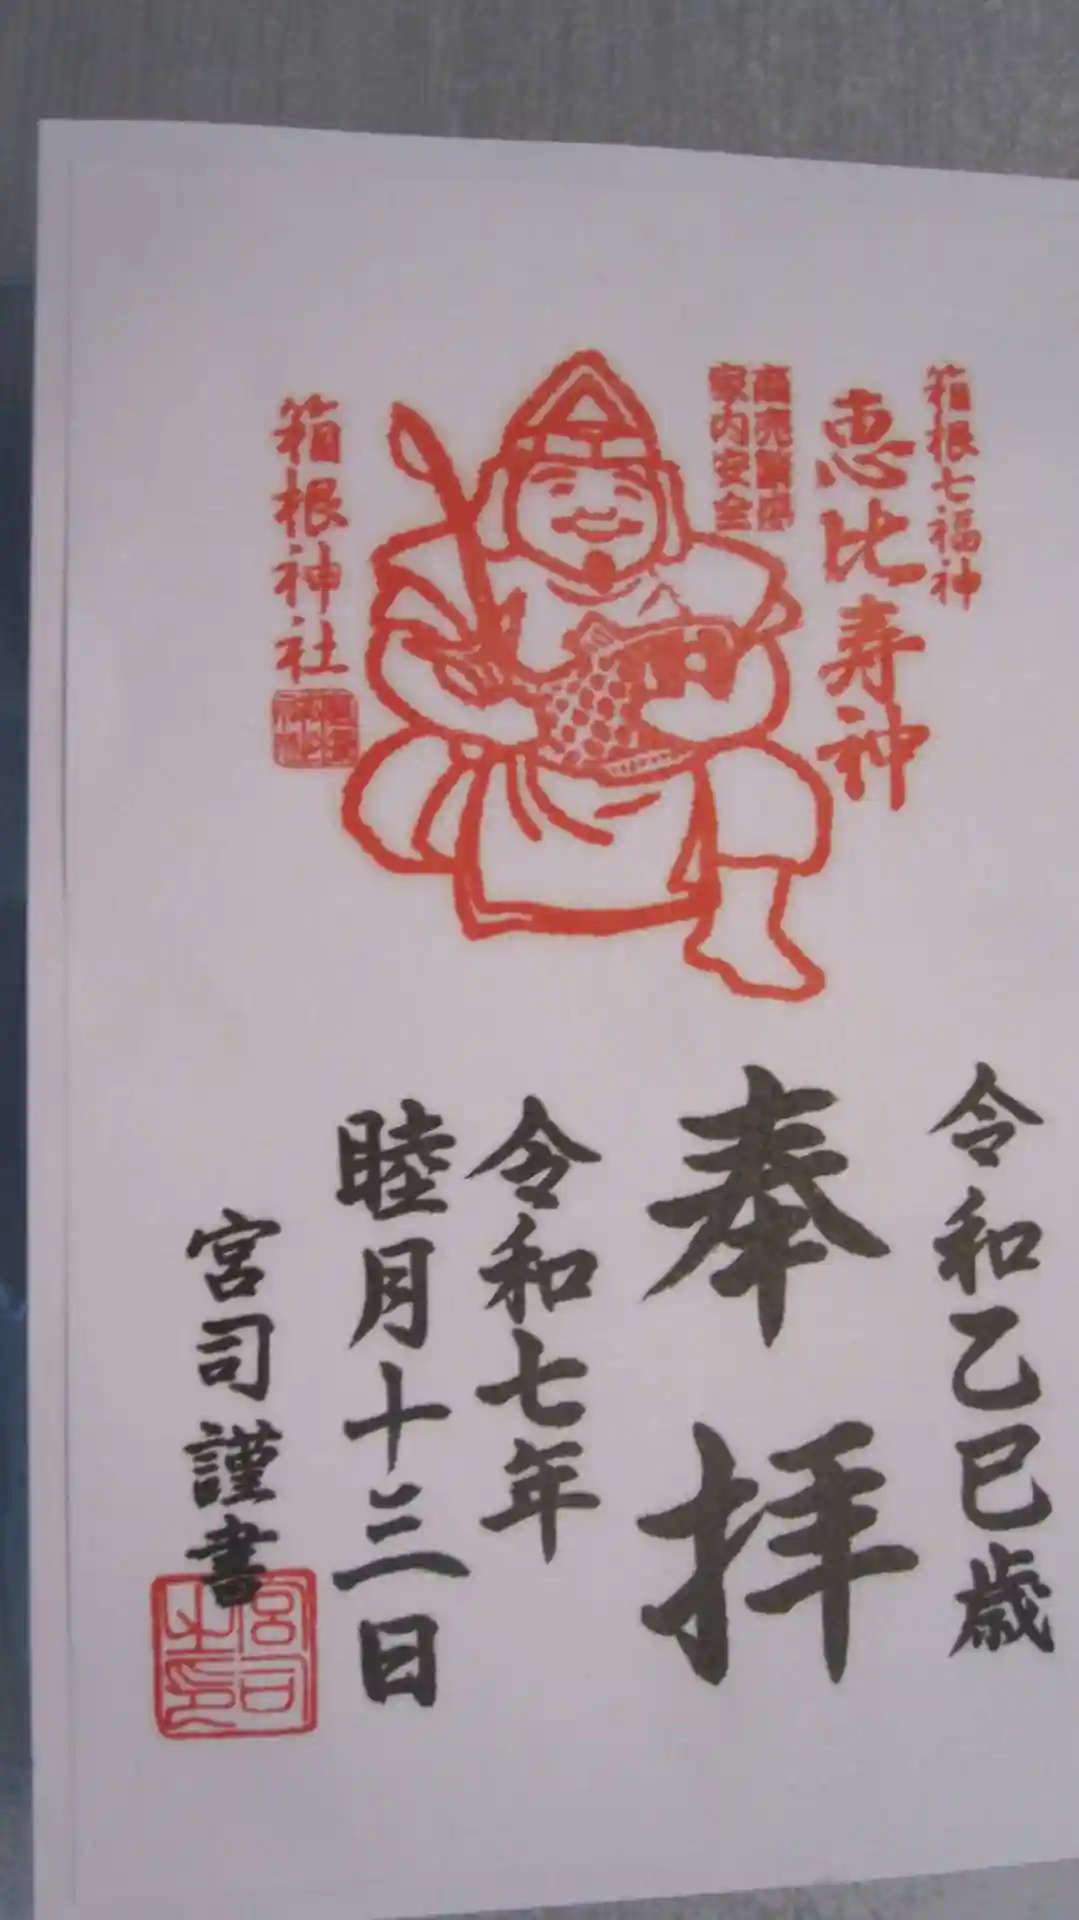 箱根七福神
恵比寿神
商売繁盛
家内安全
箱根神社
令和乙巳歳
奉拝
令和七年
睦月十三日
宮司謹書
宮司之印